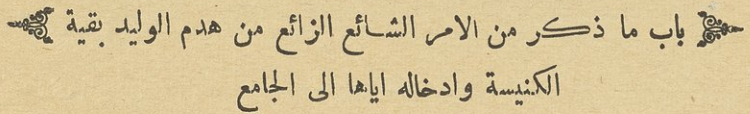 باب ما ذكر من الامر الشائع الزائع من هدم الوليد بقية
الكنيسة وادخاله اياها الى الجامع